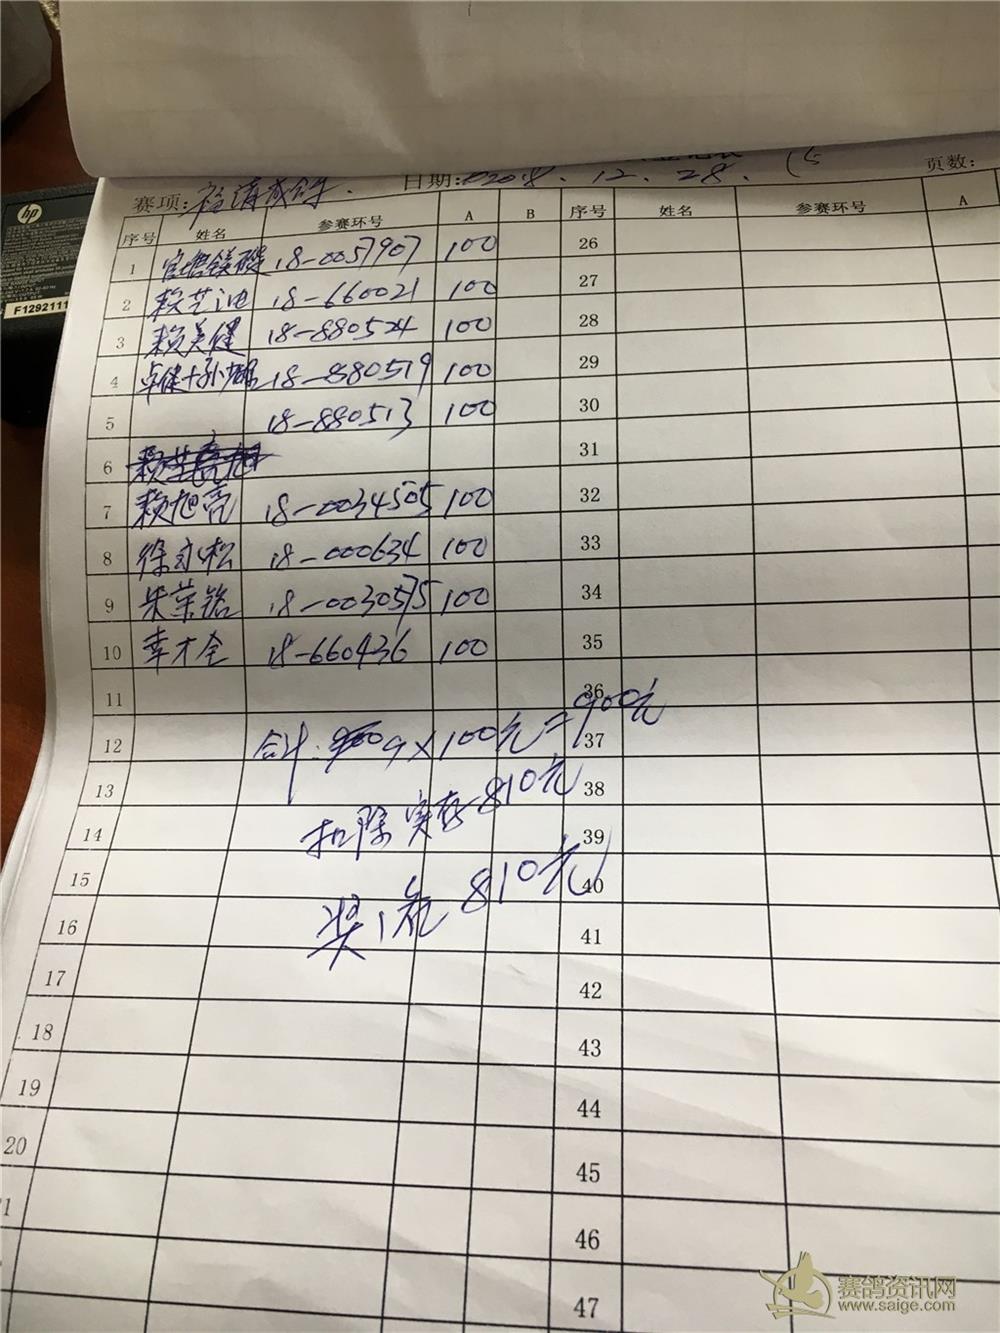 hp
F1292111
赛项: 福清
日期: 2018.12.28.
页数:
序号 姓名 参赛环号 A B 序号 姓名 参赛环号 A
1 18-0057907 100 26
2 赖芝 18-660021 100 27
3 赖美健 18-880524 100 28
4 卓健+孙 18-880519 100 29
5 18-880513 100 30
6 31
7 赖旭亮 18-0034505 100 32
8 徐永松 18-000634 100 33
9 朱荣铭 18-0030575 100 34
10 幸才全 18-660436 100 35
11 36
12 合计: 9×100元=900元 37
13 38
扣除 实存 810元
14 39
15 40
奖1名 810元
16 41
17 42
18 43
19 44
20 45
46
47
赛鸽资讯网
www.saige.com